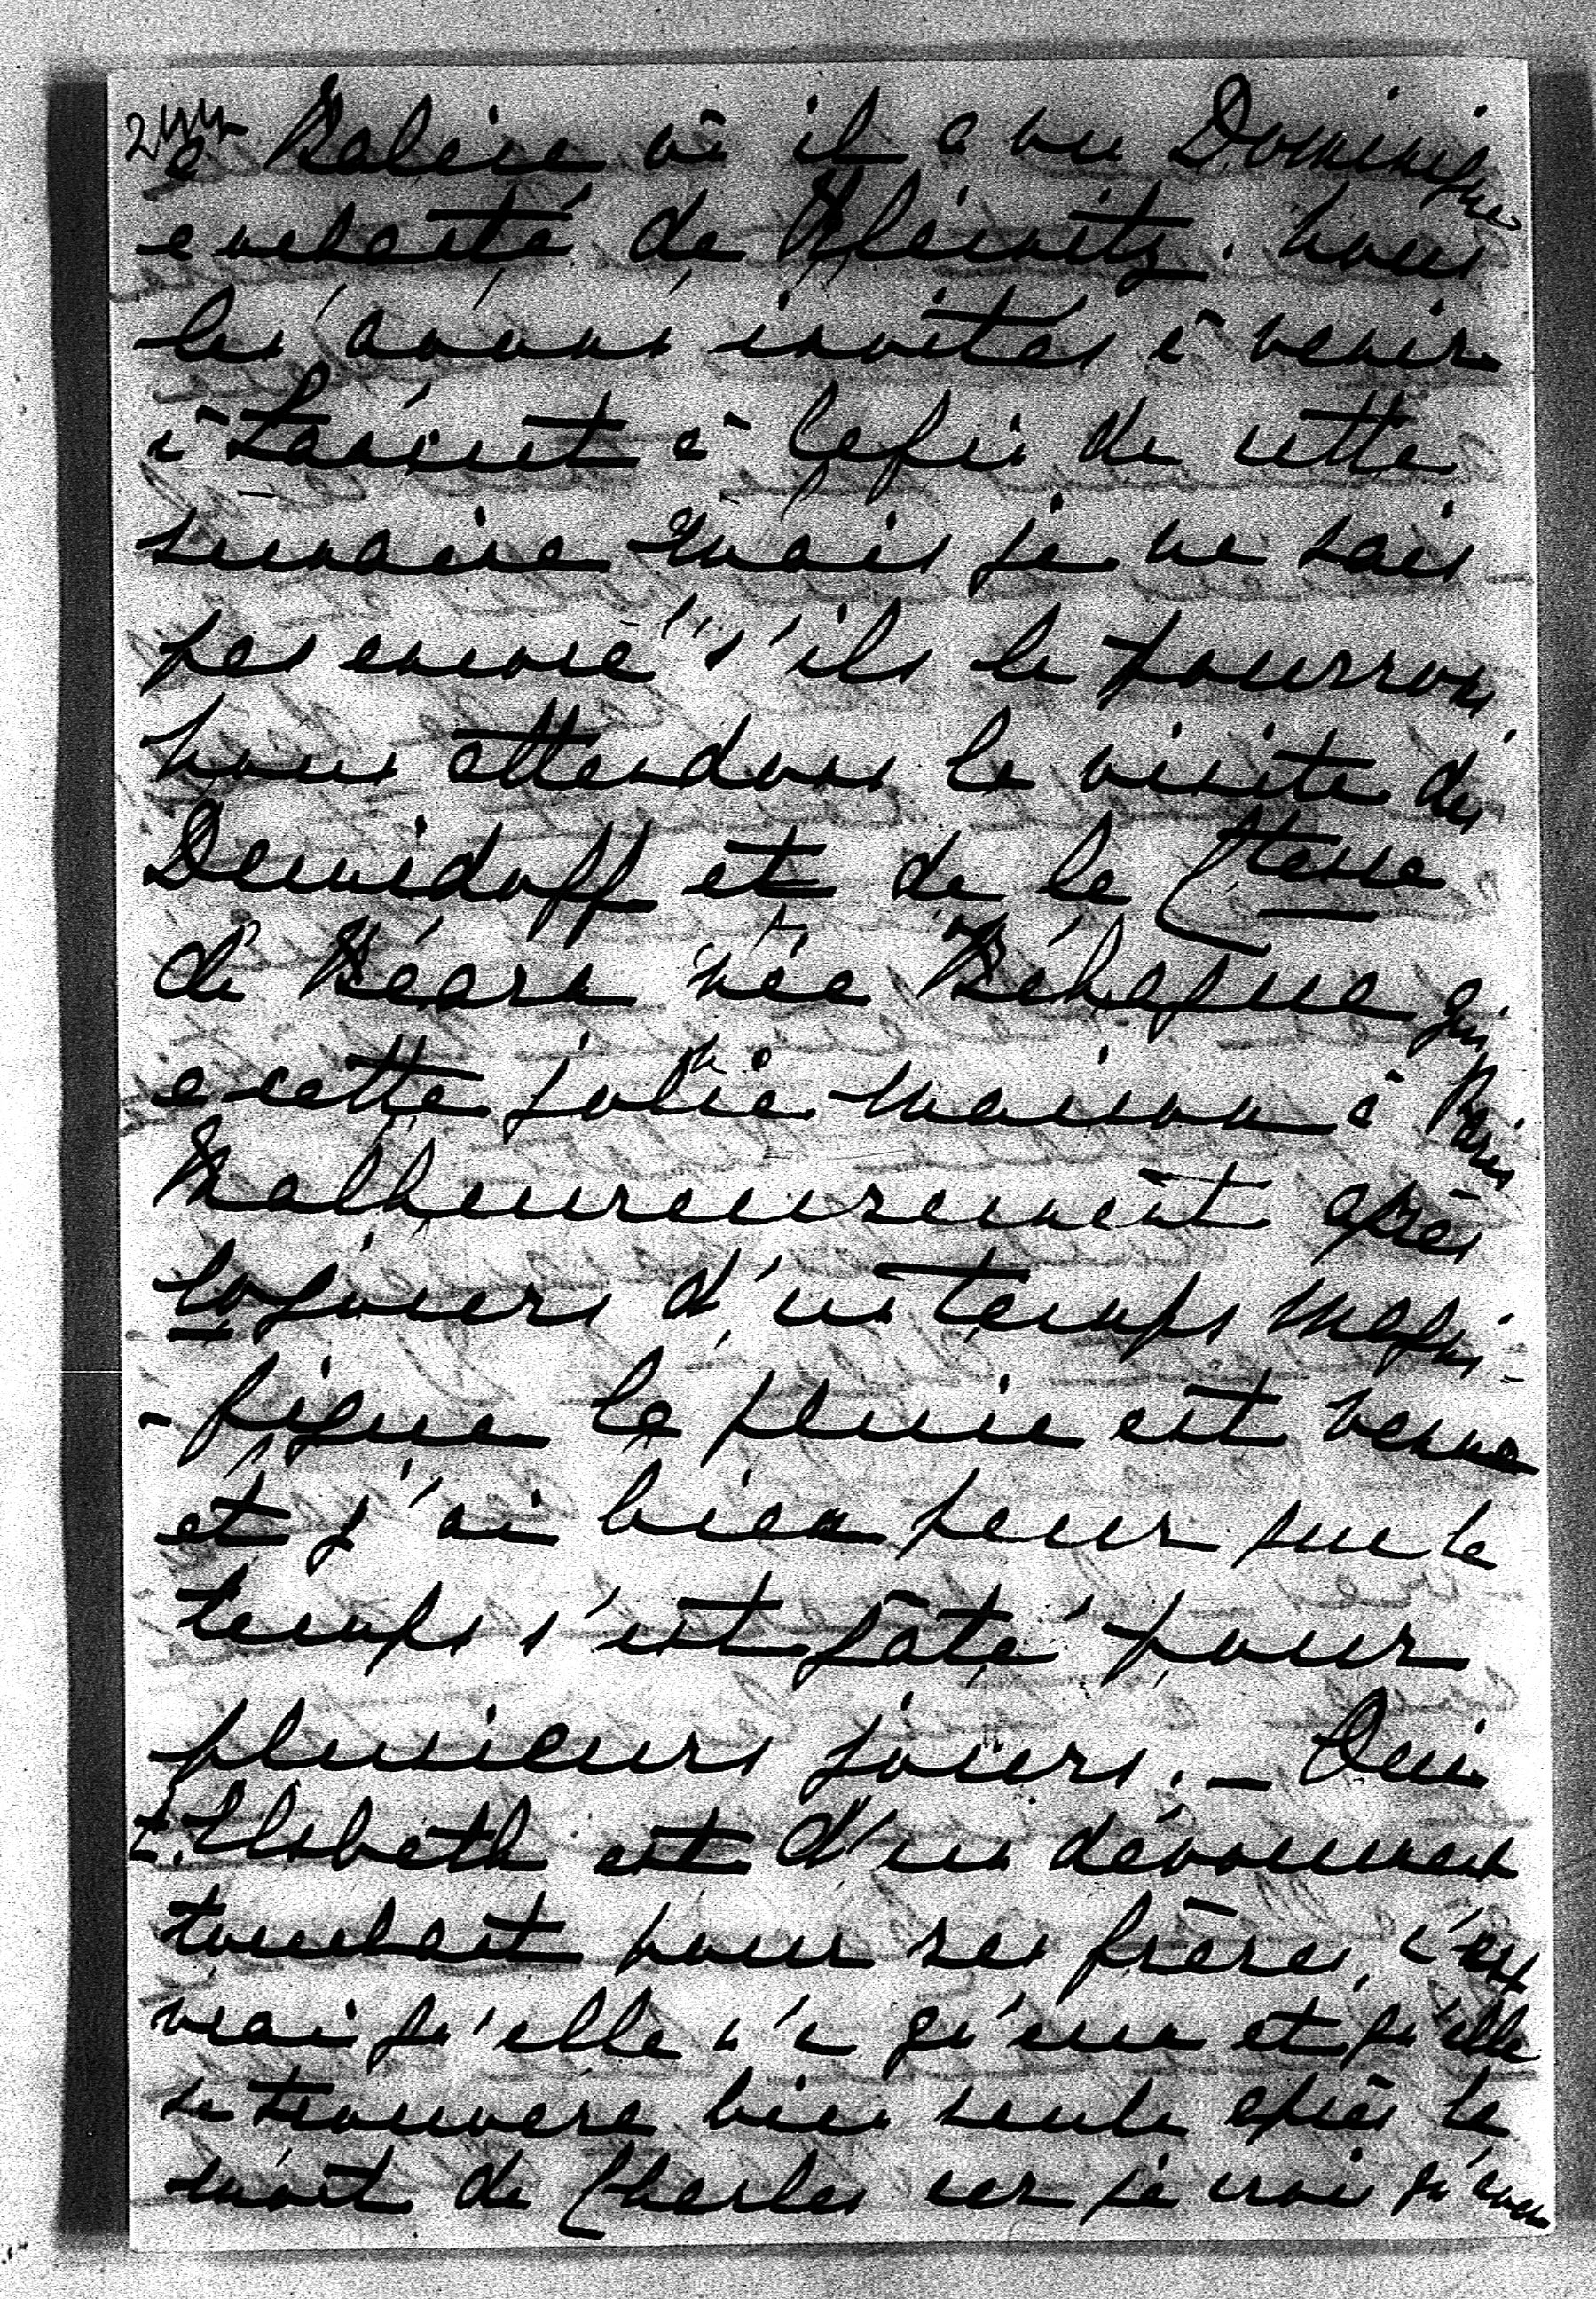 244
à Balice où il a vu Dominique
enchanté de Kleinitz. Nous
les avons invités à venir
à Łańcut à la fin de cette
semaine mais je ne sais
pas encore s'ils le pourront
nous attendons la visite des
Demidoff et de la Ctesse
de Béarn née Béhague qui
a cette jolie maison à Paris
Malheureusement après
10 jours d'un temps magni-
-fique la pluie est venue
et j'ai bien peur que le
temps s'est gâté pour
plusieurs jours. _ Oui
Elsbeth est d'un dévouement
touchant pour ses frères, c'est
vrai qu'elle n'a qu'eux et qu'elle
se trouvera bien seule après la
mort de Charles car je crois qu'avec